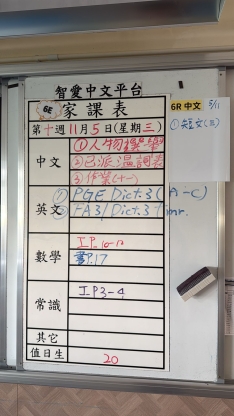 智愛中文平台
6E 家課表
第十週11月5日(星期三)
中文
①人物選舉
②已派溫調表
③作業(十一)
英文
① PGE Dict.3 (A-C)
② FA3/Dict.3 Tmr.
數學
I.P.10-12
書P.17
常識
I.P3-4
其它
值日生 20
6R 中文 5/11
①短文(三)